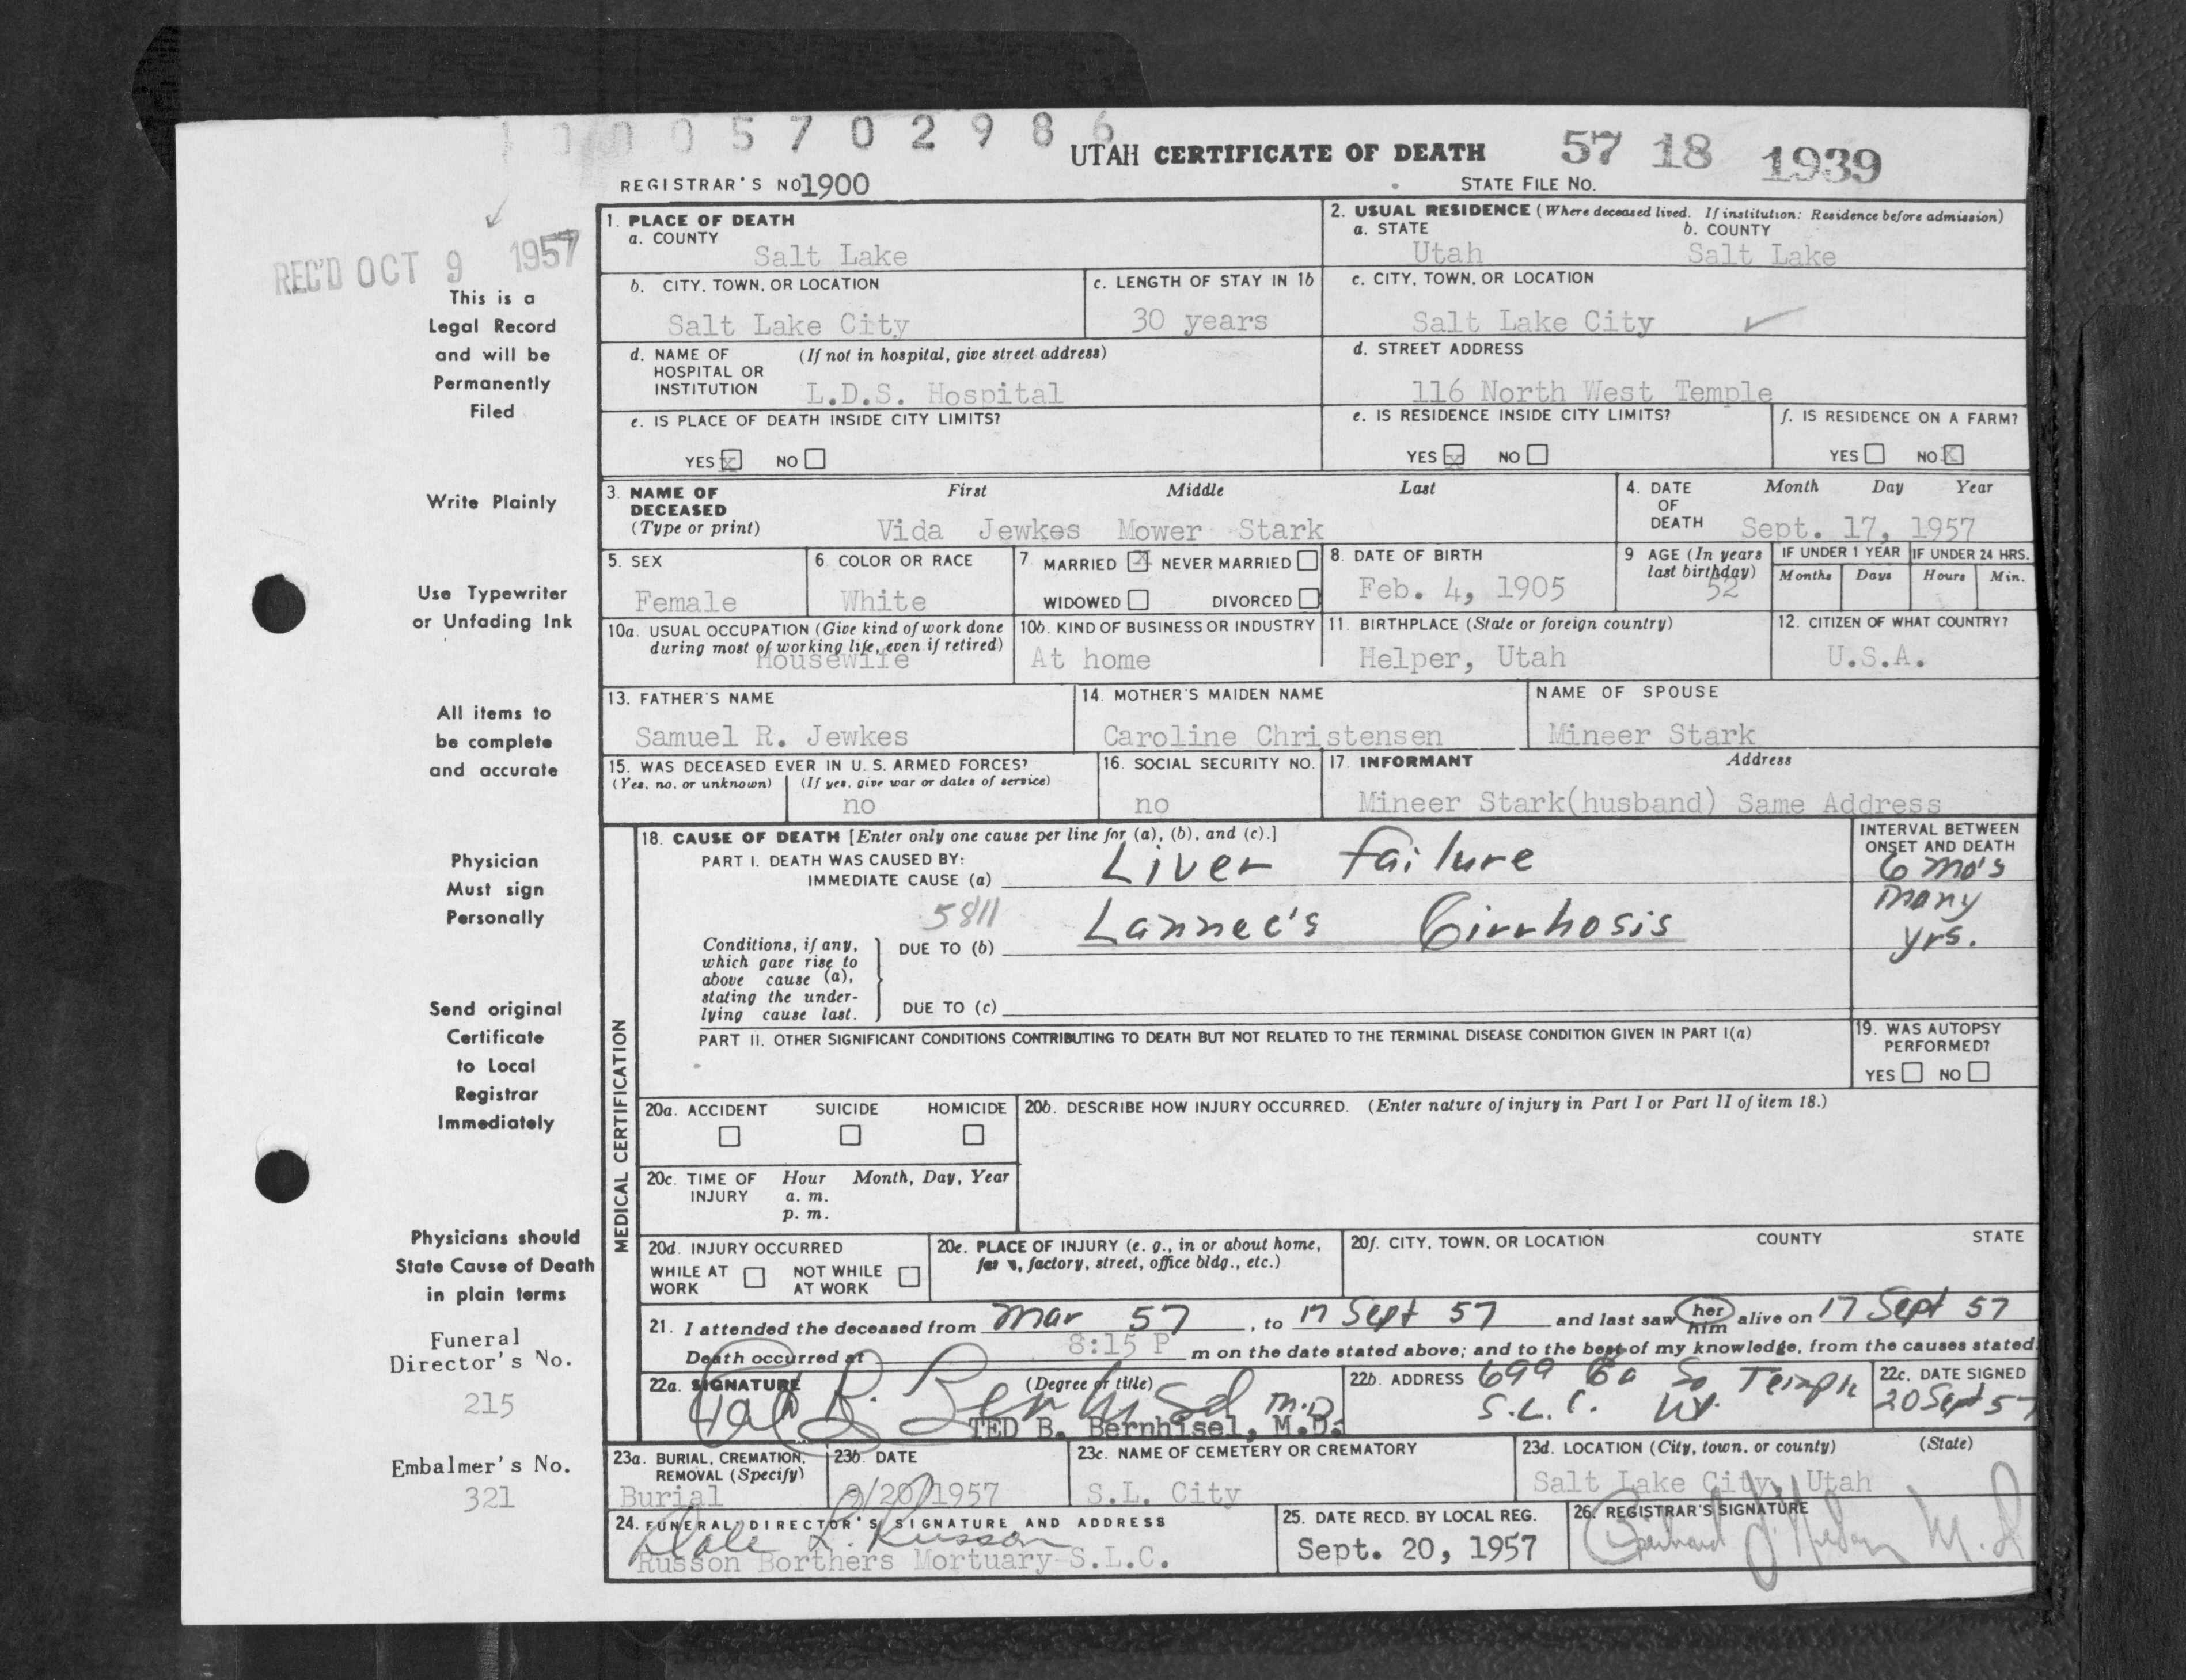 1 0 0 0 5 7 0 2 9 8 6
UTAH CERTIFICATE OF DEATH 57 18 1939
REGISTRAR'S NO 1900 STATE FILE NO.
REC'D OCT 9 1957
This is a
Legal Record
and will be
Permanently
Filed
Write Plainly
Use Typewriter
or Unfading Ink
All items to
be complete
and accurate
Physician
Must sign
Personally
Send original
Certificate
to Local
Registrar
Immediately
Physicians should
State Cause of Death
in plain terms
Funeral
Director's No.
215
Embalmer's No.
321
1. PLACE OF DEATH
a. COUNTY
Salt Lake
2. USUAL RESIDENCE (Where deceased lived. If institution: Residence before admission)
a. STATE b. COUNTY
Utah Salt Lake
b. CITY, TOWN, OR LOCATION
Salt Lake City
c. LENGTH OF STAY IN 1b
30 years
c. CITY, TOWN, OR LOCATION
Salt Lake City ✓
d. NAME OF (If not in hospital, give street address)
HOSPITAL OR
INSTITUTION L.D.S. Hospital
d. STREET ADDRESS
116 North West Temple
e. IS PLACE OF DEATH INSIDE CITY LIMITS?
YES x NO
e. IS RESIDENCE INSIDE CITY LIMITS?
YES x NO
f. IS RESIDENCE ON A FARM?
YES NO x
3. NAME OF First Middle Last
DECEASED
(Type or print) Vida Jewkes Mower Stark
4. DATE Month Day Year
OF
DEATH Sept. 17, 1957
5. SEX
Female
6. COLOR OR RACE
White
7. MARRIED x NEVER MARRIED
WIDOWED DIVORCED
8. DATE OF BIRTH
Feb. 4, 1905
9 AGE (In years
last birthday)
52
IF UNDER 1 YEAR IF UNDER 24 HRS.
Months Days Hours Min.
10a. USUAL OCCUPATION (Give kind of work done
during most of working life, even if retired)
Housewife
10b. KIND OF BUSINESS OR INDUSTRY
At home
11. BIRTHPLACE (State or foreign country)
Helper, Utah
12. CITIZEN OF WHAT COUNTRY?
U.S.A.
13. FATHER'S NAME
Samuel R. Jewkes
14. MOTHER'S MAIDEN NAME
Caroline Christensen
NAME OF SPOUSE
Mineer Stark
15. WAS DECEASED EVER IN U. S. ARMED FORCES?
(Yes, no, or unknown) (If yes, give war or dates of service)
no
16. SOCIAL SECURITY NO.
no
17. INFORMANT Address
Mineer Stark(husband) Same Address
MEDICAL CERTIFICATION
18. CAUSE OF DEATH [Enter only one cause per line for (a), (b), and (c).]
PART I. DEATH WAS CAUSED BY:
IMMEDIATE CAUSE (a) Liver failure
INTERVAL BETWEEN
ONSET AND DEATH
6 mo's
5811
Conditions, if any,
which gave rise to
above cause (a),
stating the under-
lying cause last.
DUE TO (b) Lannec's Cirrhosis
many
yrs.
DUE TO (c)
PART II. OTHER SIGNIFICANT CONDITIONS CONTRIBUTING TO DEATH BUT NOT RELATED TO THE TERMINAL DISEASE CONDITION GIVEN IN PART I(a)
19. WAS AUTOPSY
PERFORMED?
YES NO
20a. ACCIDENT SUICIDE HOMICIDE
20b. DESCRIBE HOW INJURY OCCURRED. (Enter nature of injury in Part I or Part II of item 18.)
20c. TIME OF Hour Month, Day, Year
INJURY a. m.
p. m.
20d. INJURY OCCURRED
WHILE AT NOT WHILE
WORK AT WORK
20e. PLACE OF INJURY (e. g., in or about home,
factory, street, office bldg., etc.)
20f. CITY, TOWN, OR LOCATION COUNTY STATE
21. I attended the deceased from Mar 57, to 17 Sept 57 and last saw her him alive on 17 Sept 57
Death occurred at 8:15 P m on the date stated above; and to the best of my knowledge, from the causes stated
22a. SIGNATURE (Degree or title)
Ted B. Bernhisel M.D.
TED B. Bernhisel, M.D.
22b. ADDRESS 699 Ea So Temple
S.L.C. Ut.
22c. DATE SIGNED
20 Sept 57
23a. BURIAL, CREMATION,
REMOVAL (Specify)
Burial
23b. DATE
9/20/1957
23c. NAME OF CEMETERY OR CREMATORY
S.L. City
23d. LOCATION (City, town, or county) (State)
Salt Lake City, Utah
24. FUNERAL DIRECTOR'S SIGNATURE AND ADDRESS
Dale L. Russon
Russon Borthers Mortuary-S.L.C.
25. DATE RECD. BY LOCAL REG.
Sept. 20, 1957
26. REGISTRAR'S SIGNATURE
M.D.